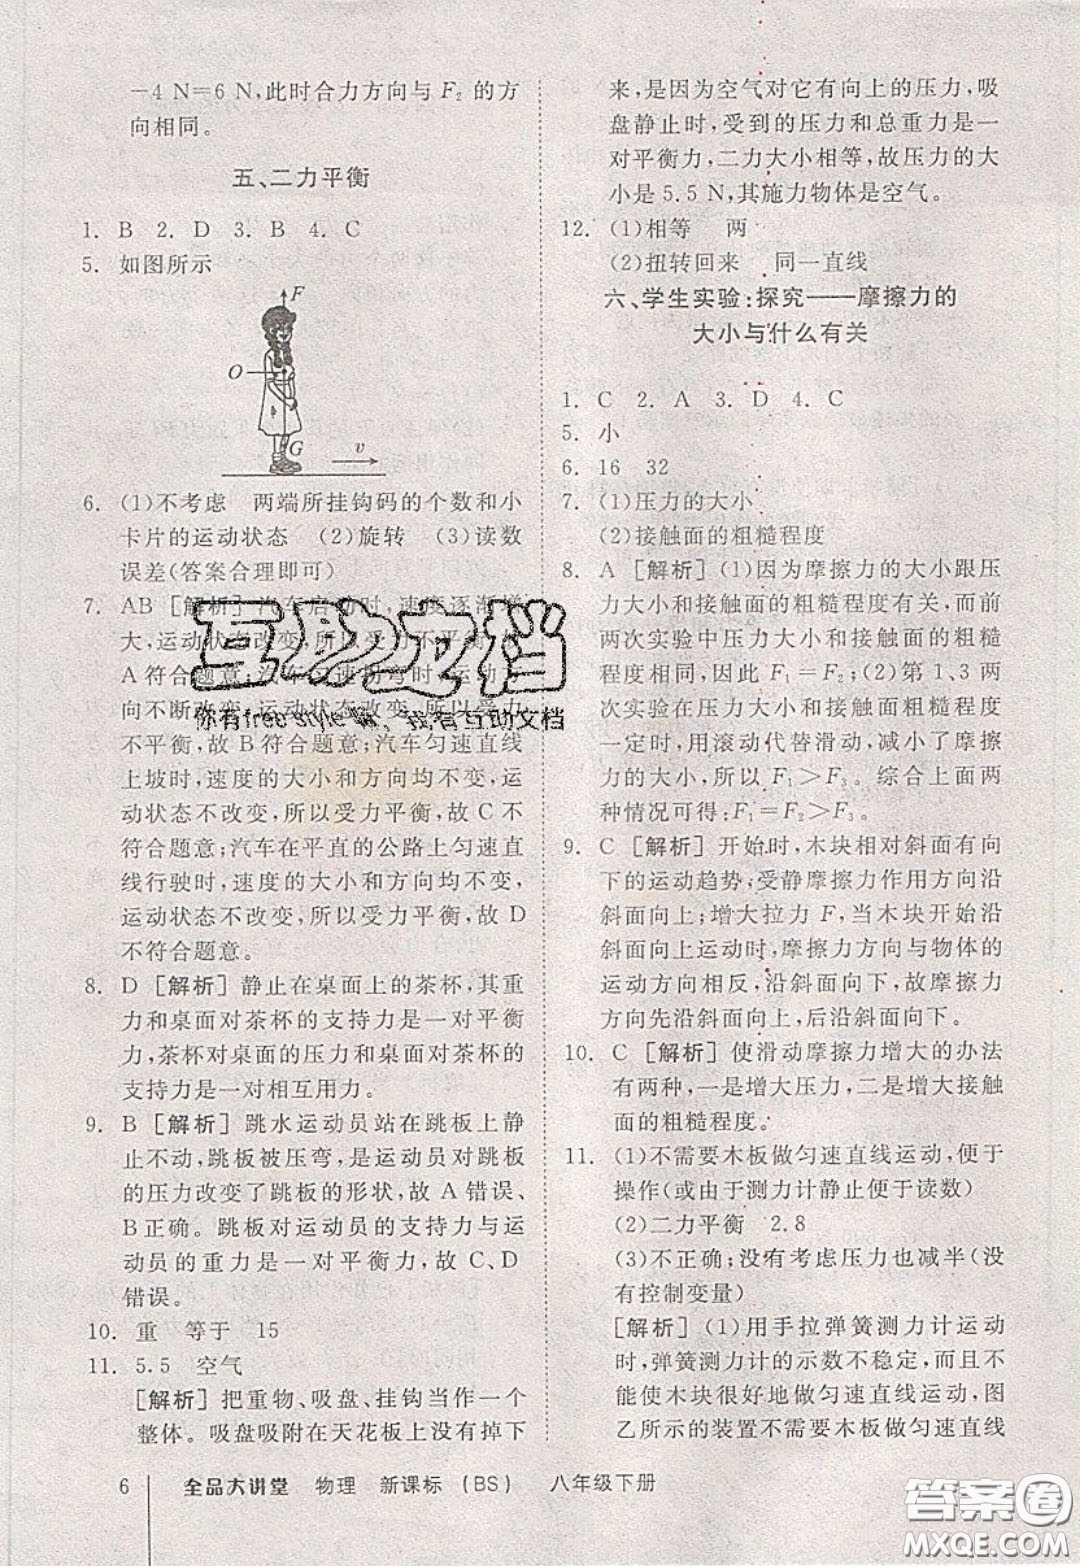 -4 N=6 N,此时合力方向与 F₂ 的方
向相同。
五、二力平衡
1. B 2. D 3. B 4. C
5. 如图所示
F
O
G
v
6. (1)不考虑 两端所挂钩码的个数和小
卡片的运动状态 (2)旋转 (3)读数
误差(答案合理即可)
7. AB [解析] 汽车启动时,速度逐渐增
大,运动状态改变,所以受力不平衡,故
A符合题意;汽车
向不断改变,运动状态改变,所以受力
不平衡,故 B 符合题意;汽车匀速直线
上坡时,速度的大小和方向均不变,运
动状态不改变,所以受力平衡,故 C 不
符合题意;汽车在平直的公路上匀速直
线行驶时,速度的大小和方向均不变,
运动状态不改变,所以受力平衡,故 D
不符合题意。
8. D [解析] 静止在桌面上的茶杯,其重
力和桌面对茶杯的支持力是一对平衡
力,茶杯对桌面的压力和桌面对茶杯的
支持力是一对相互用力。
9. B [解析] 跳水运动员站在跳板上静
止不动,跳板被压弯,是运动员对跳板
的压力改变了跳板的形状,故 A 错误、
B正确。跳板对运动员的支持力与运
动员的重力是一对平衡力,故 C、D
错误。
10. 重 等于 15
11. 5.5 空气
[解析] 把重物、吸盘、挂钩当作一个
整体。吸盘吸附在天花板上没有掉下
来,是因为空气对它有向上的压力,吸
盘静止时,受到的压力和总重力是一
对平衡力,二力大小相等,故压力的大
小是 5.5 N,其施力物体是空气。
12. (1)相等 两
(2)扭转回来 同一直线
六、学生实验:探究——摩擦力的
大小与什么有关
1. C 2. A 3. D 4. C
5. 小
6. 16 32
7. (1)压力的大小
(2)接触面的粗糙程度
8. A [解析] (1)因为摩擦力的大小跟压
力大小和接触面的粗糙程度有关,而前
两次实验中压力大小和接触面的粗糙
程度相同,因此 F₁=F₂;(2)第 1、3 两
次实验的压力大小和接触面粗糙程度
一定时,用滚动代替滑动,减小了摩擦
力的大小,所以 F₁>F₃。综合上面两
种情况可得:F₁=F₂>F₃。
9. C [解析] 开始时,木块相对斜面有向下
的运动趋势,受静摩擦力作用方向沿
斜面向上;增大拉力 F,当木块开始沿
斜面向上运动时,摩擦力方向与物体的
运动方向相反,沿斜面向下,故摩擦力
方向先沿斜面向上,后沿斜面向下。
10. C [解析] 使滑动摩擦力增大的办法
有两种,一是增大压力,二是增大接触
面的粗糙程度。
11. (1)不需要木板做匀速直线运动,便于
操作(或由于测力计静止便于读数)
(2)二力平衡 2.8
(3)不正确;没有考虑压力也减半(没
有控制变量)
[解析] (1)用手拉弹簧测力计运动
时,弹簧测力计的示数不稳定,而且不
能使木块很好地做匀速直线运动,图
乙所示的装置不需要木板做匀速直线
互助文档
你有free style嘛,我有互助文档
6 全品大讲堂 物理 新课标 (BS) 八年级下册
答案圈
MXQE.COM